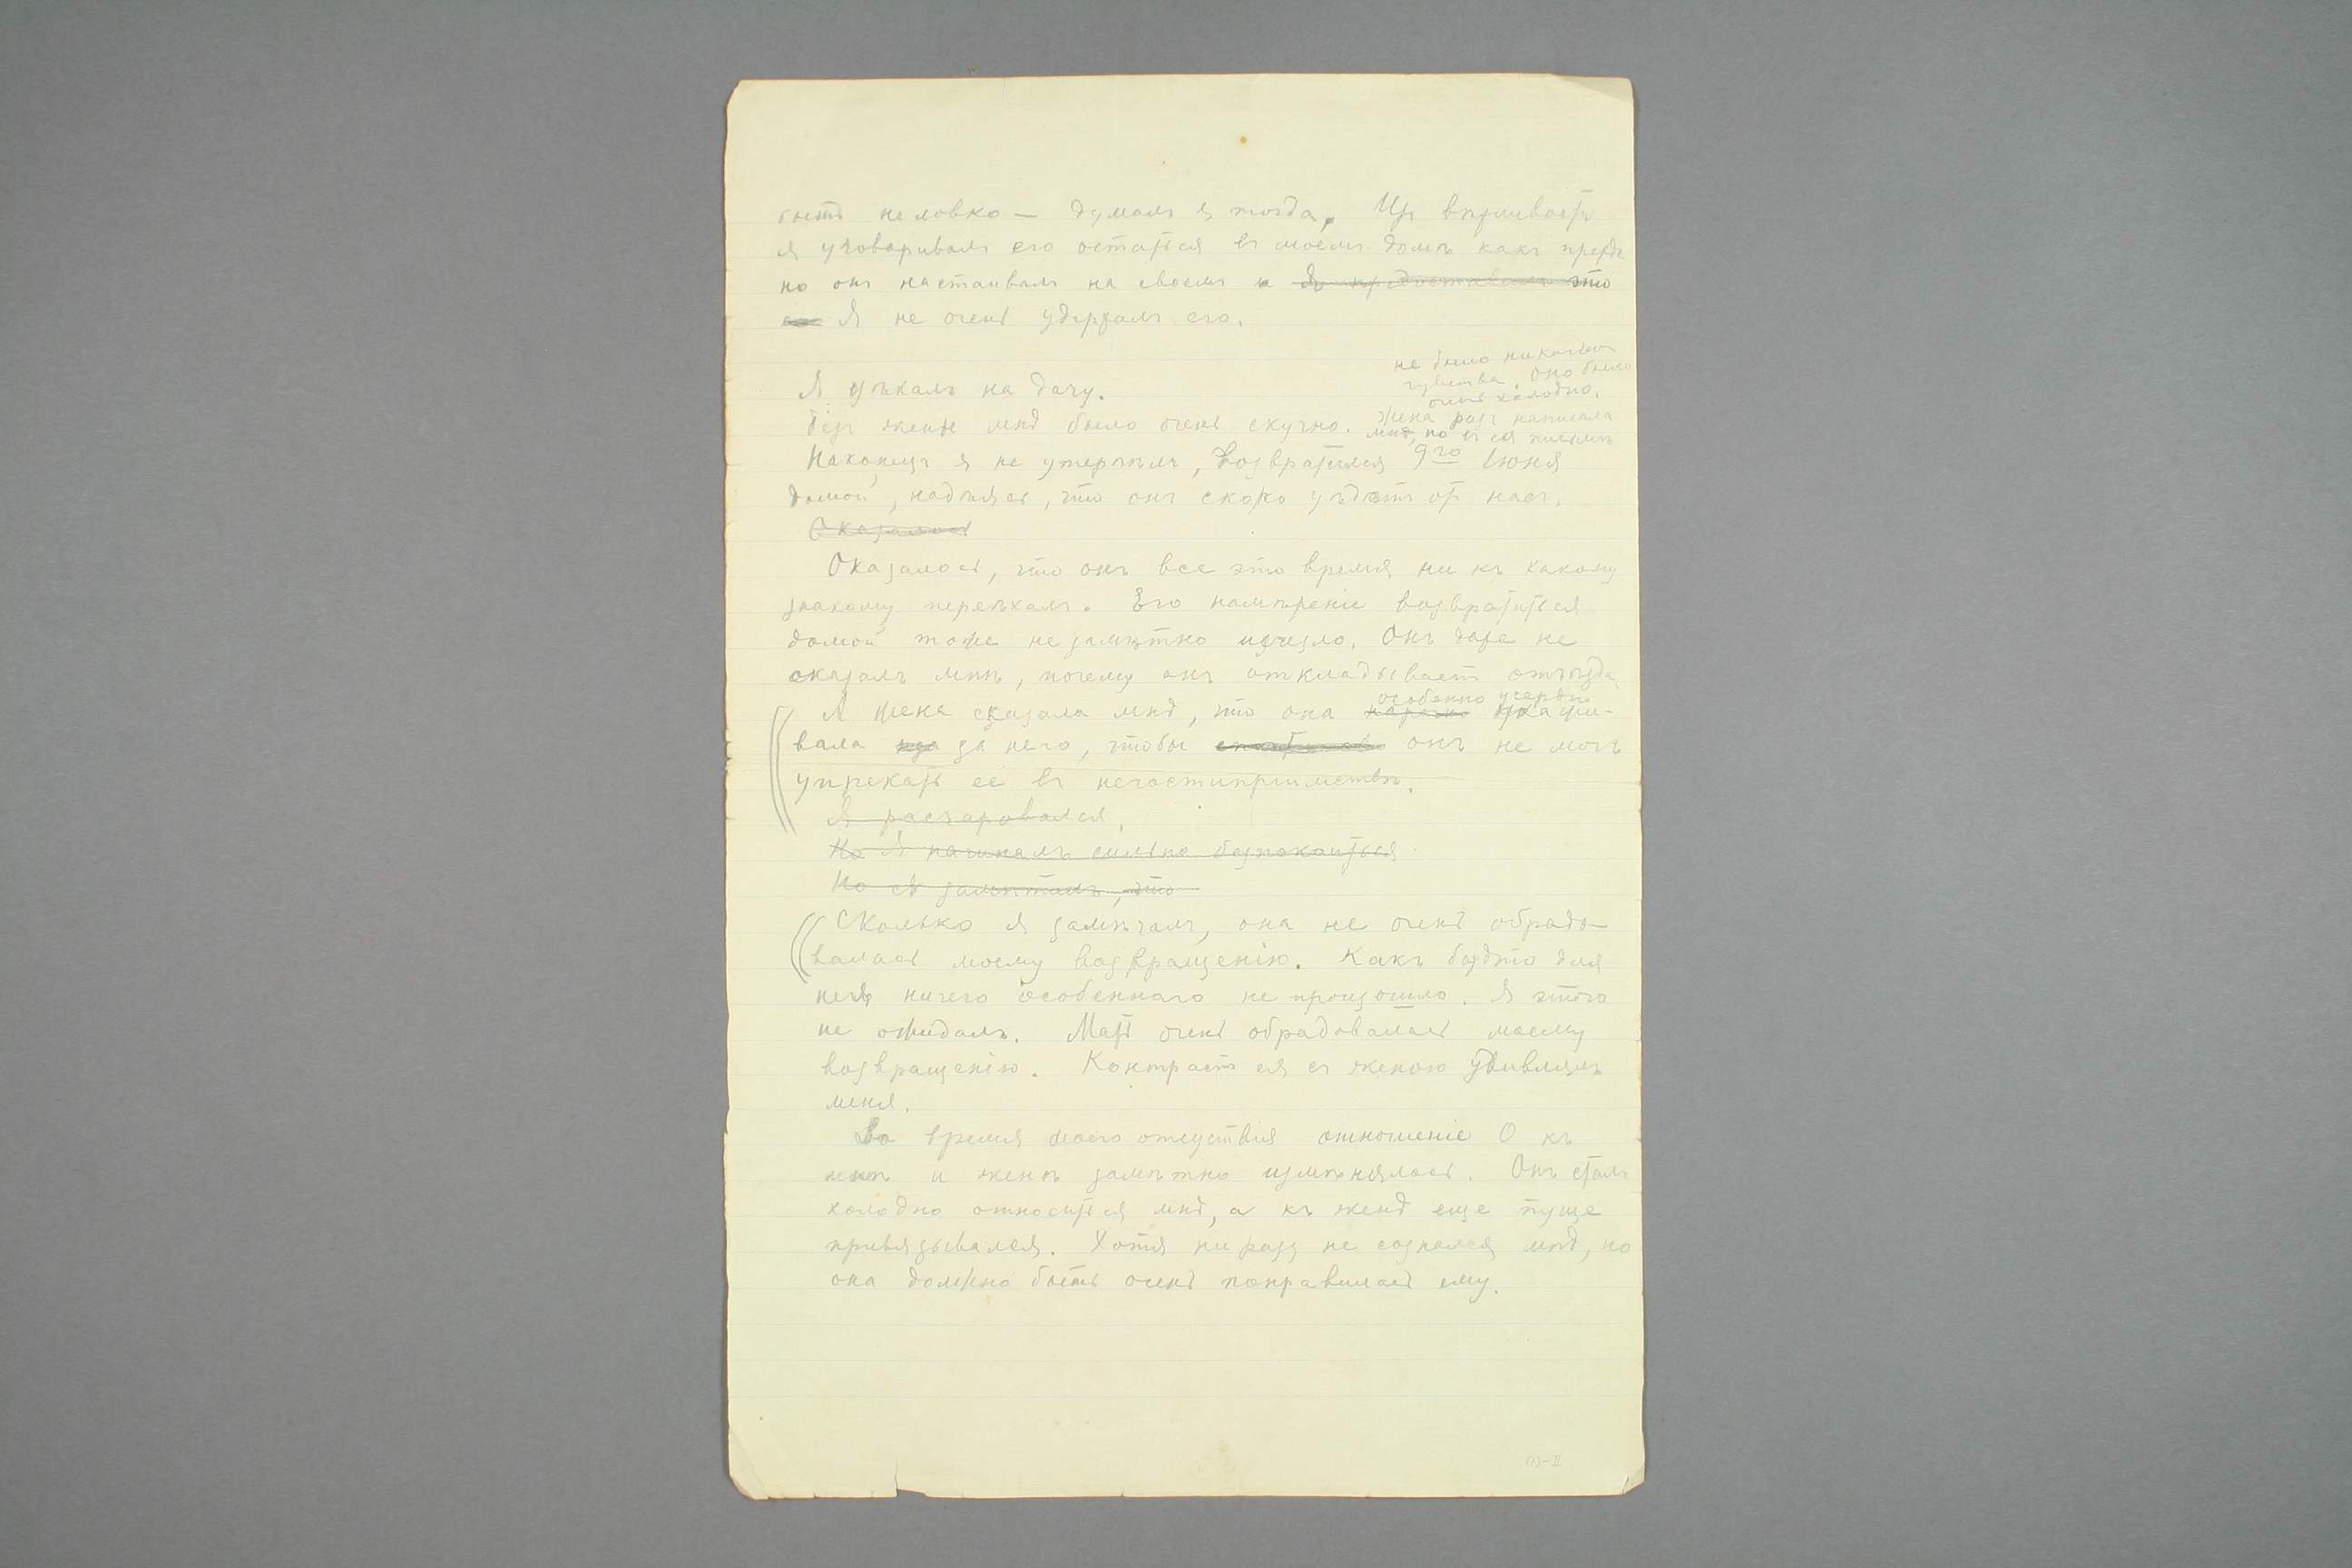 быть неловко — думалъ я тогда. Изъ вѣжливости
я уговаривалъ его остаться въ моемъ домѣ какъ прежде
но онъ настаивалъ на своемъ и что
Я не очень удержалъ его.
не было никакого
чувства. Оно было
очень холодно.
Я уѣхалъ на дачу.
Безъ жены мнѣ было очень скучно. Жена разъ написала
мнѣ, но въ ея письмѣ
Наконецъ я не утерпѣлъ, возвратился 9го Iюня
домой, надѣясь, что онъ скоро уѣдетъ отъ насъ.
Оказалось
Оказалось, что онъ все это время ни къ какому
знакому переѣхалъ. Его намѣренiе возвратиться
домой тоже незамѣтно изчезло. Онъ даже не
сказалъ мнѣ, почему онъ откладываетъ отъѣзда.
особенно усердно
А жена сказала мнѣ, что она ухажи-
вала за него, чтобы онъ не могъ
упрекать ее въ негостипрiимствѣ.
Я расчаровался.
Но Я начиналъ сильно безпокоиться
Но я замѣтилъ, что
Сколько я замѣчалъ, она не очень обрадо-
валась моему возвращенiю. Какъ будто для
нея ничего особеннаго не произошло. Я этого
не ожидалъ. Мать очень обрадовалась моему
возвращенiю. Контрастъ ея съ женою удивлялъ
меня.
Во время моего отсуствiя отношенiе О къ
мнѣ и женѣ замѣтно измѣнялось. Онъ сталъ
холодно относиться мнѣ, а къ женѣ еще пуще
привязывался. Хотя ни разу не сознался мнѣ, но
она должно быть очень понравилась ему.